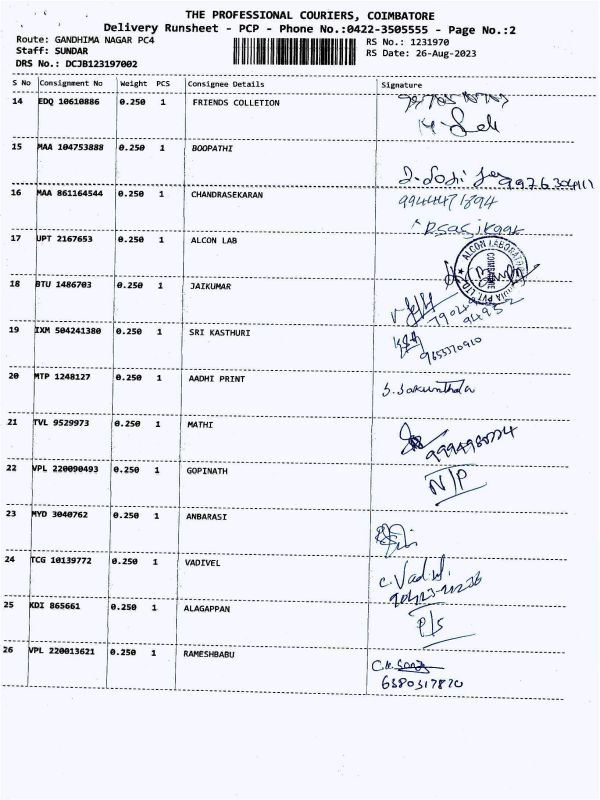 THE PROFESSIONAL COURIERS, COIMBATORE
Delivery Runsheet - PCP - Phone No.:0422-3505555 - Page No.:2
Route: GANDHIMA NAGAR PC4 RS No.: 1231970
Staff: SUNDAR RS Date: 26-Aug-2023
DRS No.: DCJB123197002
S No Consignment No Weight PCS Consignee Details Signature
14 EDQ 10610886 0.250 1 FRIENDS COLLETION
15 MAA 104753888 0.250 1 BOOPATHI
16 MAA 861164544 0.250 1 CHANDRASEKARAN
17 UPT 2167653 0.250 1 ALCON LAB
ALCON LABORATORIES INDIA PVT LTD
COIMBATORE
18 BTU 1486703 0.250 1 JAIKUMAR
19 IXM 504241380 0.250 1 SRI KASTHURI
9655370910
20 MTP 1248127 0.250 1 AADHI PRINT
S. Sakunthala
21 TVL 9529973 0.250 1 MATHI
22 VPL 220090493 0.250 1 GOPINATH
N/P
23 MYD 3040762 0.250 1 ANBARASI
24 TCG 10139772 0.250 1 VADIVEL
C. Vadivel
25 KDI 865661 0.250 1 ALAGAPPAN
P/S
26 VPL 220013621 0.250 1 RAMESHBABU
6380317870